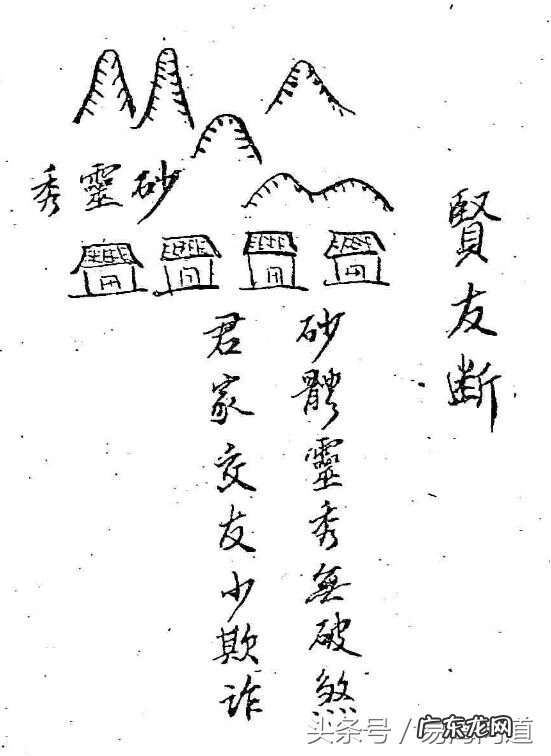 賢友断
砂靈秀
砂體靈秀無破煞
君家交友少欺诈
头条号 / 易
广东龙网